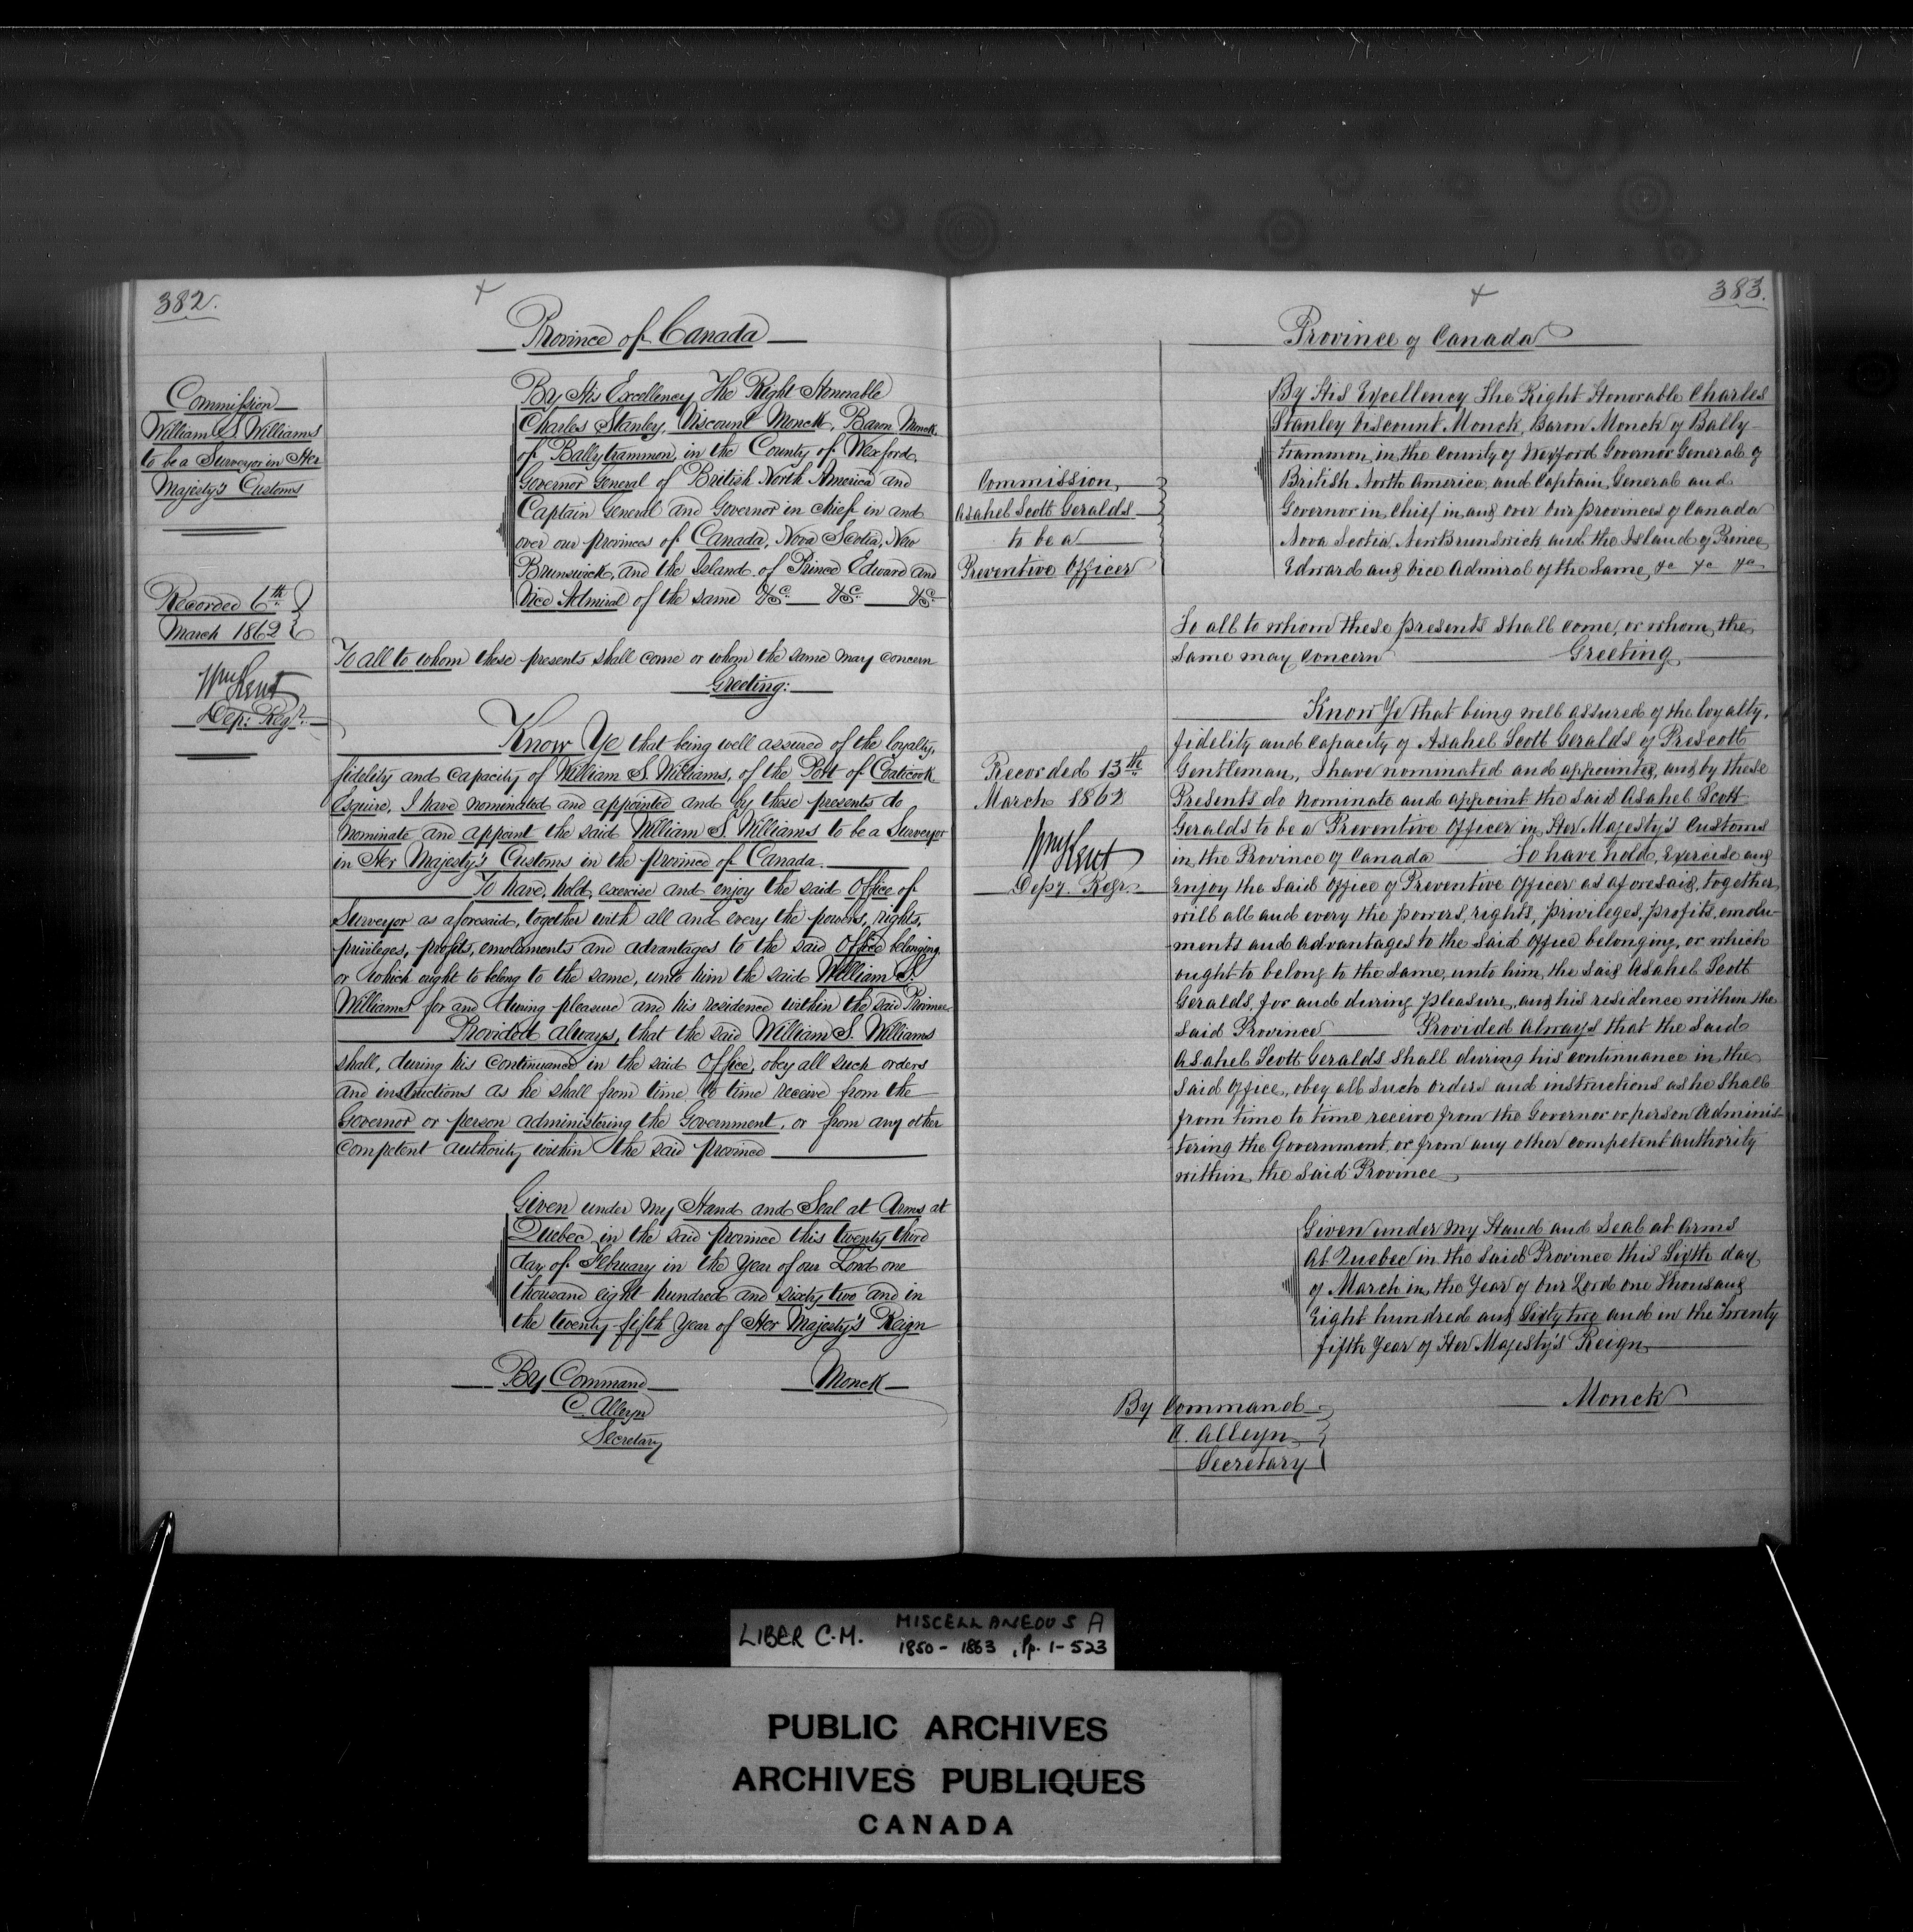 382.
Province of Canada
Commission
William S. Williams
to be a Surveyor in Her
Majesty's Customs
Recorded 6th
March 1862
Wm Kent
Dep: Regr.
By His Excellency The Right Honorable
Charles Stanley, Viscount Monck, Baron Monck
of Ballytrammon, in the County of Wexford,
Governor General of British North America and
Captain General and Governor in chief in and
over our provinces of Canada, Nova Scotia, New
Brunswick, and the Island of Prince Edward and
Vice Admiral of the same &c. &c. &c.
To all to whom these presents shall come or whom the same may concern
Greeting:
Know Ye that being well assured of the loyalty,
fidelity and capacity of William S. Williams, of the Port of Coaticook
Esquire, I have nominated and appointed and by these presents do
nominate and appoint the said William S. Williams to be a Surveyor
in Her Majesty's Customs in the province of Canada.
To have, hold, exercise and enjoy the said Office of
Surveyor as aforesaid, together with all and every the powers, rights,
privileges, profits, emoluments and advantages to the said Office belonging
or which ought to belong to the same, unto him the said William S.
Williams for and during pleasure and his residence within the said Province
Provided always, that the said William S. Williams
shall, during his continuance in the said Office, obey all such orders
and instructions as he shall from time to time receive from the
Governor or person administering the Government, or from any other
competent authority within the said province
Given under my Hand and Seal at Arms at
Quebec, in the said province this twenty third
day of February in the Year of our Lord one
thousand eight hundred and sixty two and in
the twenty fifth Year of Her Majesty's Reign
By Command
Monck
C. Alleyn
Secretary
383.
Province of Canada
Commission
Asahel Scott Geralds
to be a
Preventive Officer
Recorded 13th
March 1862
Wm Kent
Depy. Regr.
By His Excellency The Right Honorable Charles
Stanley Viscount Monck, Baron Monck of Bally-
trammon, in the County of Wexford Governor General of
British North America, and Captain General and
Governor in Chief in and over Our provinces of Canada
Nova Scotia, New Brunswick and the Island of Prince
Edward and Vice Admiral of the Same, &c &c &c
To all to whom these presents shall come, or whom the
same may concern Greeting
Know Ye that being well assured of the loyalty,
fidelity and capacity of Asahel Scott Geralds of Prescott
Gentleman, I have nominated and appointed, and by these
Presents do nominate and appoint the said Asahel Scott
Geralds to be a Preventive Officer in Her Majesty's Customs
in the Province of Canada To have hold, Exercise and
Enjoy the said Office of Preventive Officer as aforesaid, together
will all and every the powers, rights, privileges, profits, emolu-
ments and advantages to the said Office belonging, or which
ought to belong to the same, unto him, the said Asahel Scott
Geralds, for and during pleasure, and his residence within the
said Province Provided always that the said
Asahel Scott Geralds shall during his continuance in the
said Office, obey all such orders and instructions as he shall
from time to time receive from the Governor or person Adminis-
tering the Government, or from any other competent authority
within the said Province
Given under my Hand and Seal at Arms
At Quebec in the said Province this Sixth day
of March in the Year of Our Lord one Thousand
Eight hundred and Sixty two and in the Twenty
fifth Year of Her Majesty's Reign
Monck
By Command
C. Alleyn
Secretary
LIBER C.M. MISCELLANEOUS A
1850 - 1863, Pp. 1-523
PUBLIC ARCHIVES
ARCHIVES PUBLIQUES
CANADA